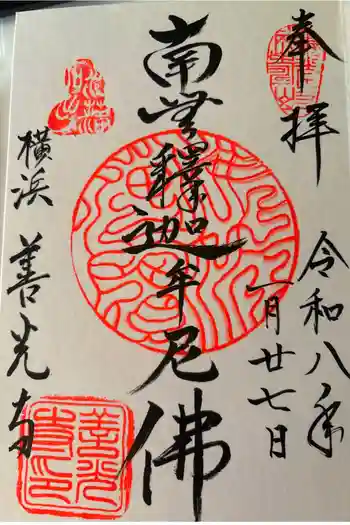 奉拝
令和八年
一月廿七日
南無釋迦牟尼佛
横浜
善光寺
善光寺印